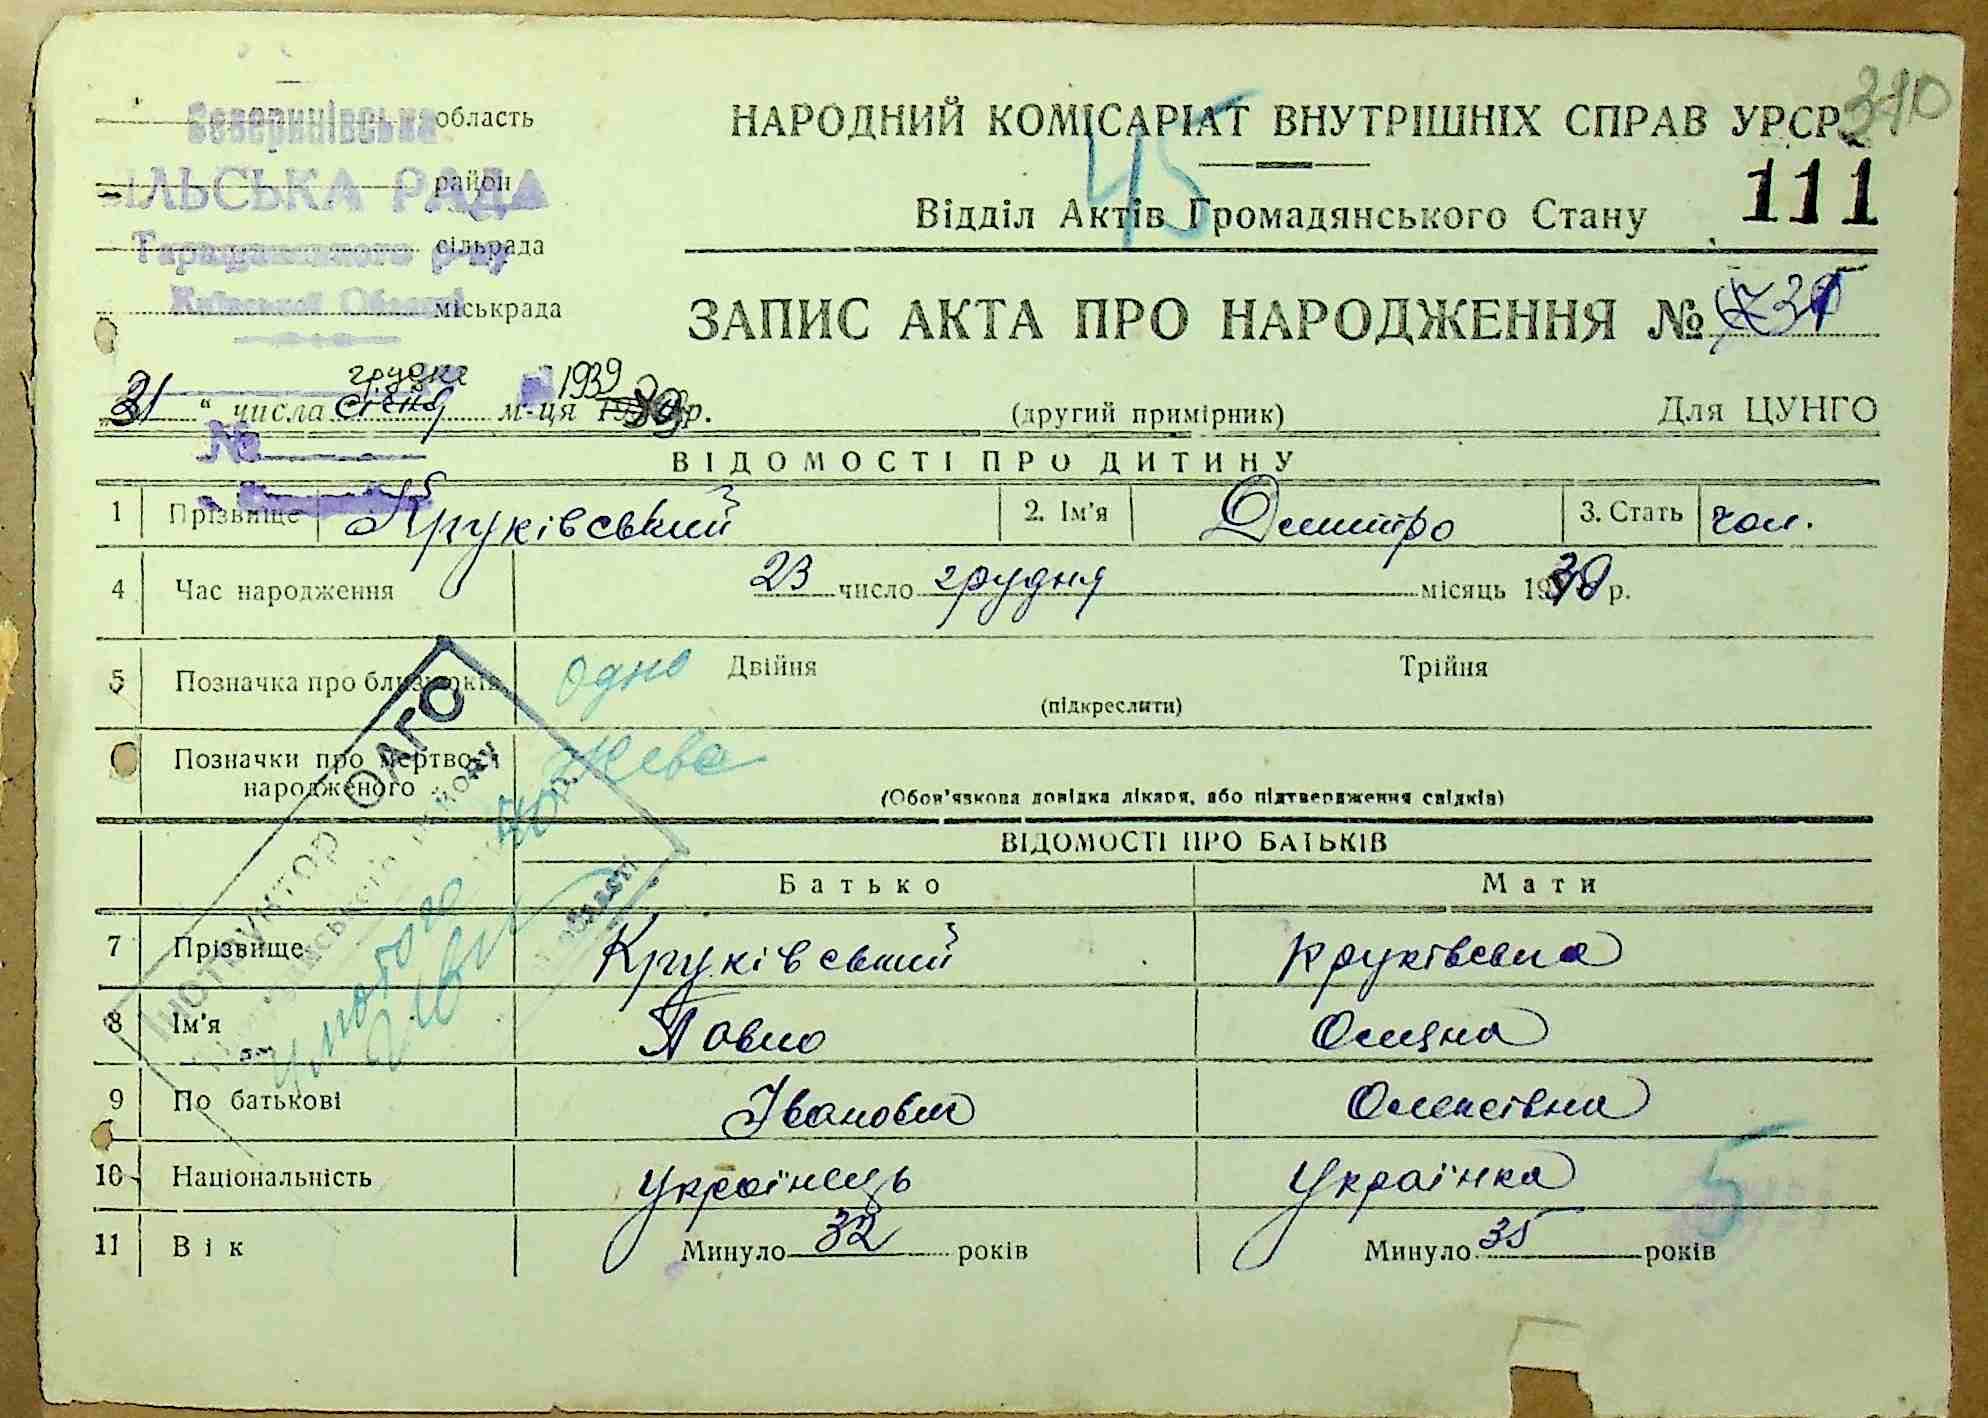 310
Северинівська область
СІЛЬСЬКА РАДА район
Таращанського р-ну сільрада
Київської Області міськрада
НАРОДНИЙ КОМІСАРІАТ ВНУТРІШНІХ СПРАВ УРСР
45
111
Відділ Актів Громадянського Стану
ЗАПИС АКТА ПРО НАРОДЖЕННЯ №
грудня 1939
„31“ числа січня м-ця 19 р.
(другий примірник)
Для ЦУНГО
№
ВІДОМОСТІ ПРО ДИТИНУ
1 Прізвище Круківський 2. Ім'я Дмитро 3. Стать чол.
4 Час народження 23 число грудня місяць 1939 р.
5 Позначка про близнюків одно Двійня Трійня
(підкреслити)
Позначки про мертвості народженого жива
(Обов'язкова довідка лікаря, або підтвердження свідків)
ІНСПЕКТОР ОАГО
області
ВІДОМОСТІ ПРО БАТЬКІВ
Батько Мати
7 Прізвище Круківський Круківська
8 Ім'я Павло
9 По батькові Іванович Олексівна
10 Національність Українець Українка
5
11 Вік Минуло 32 років Минуло 35 років